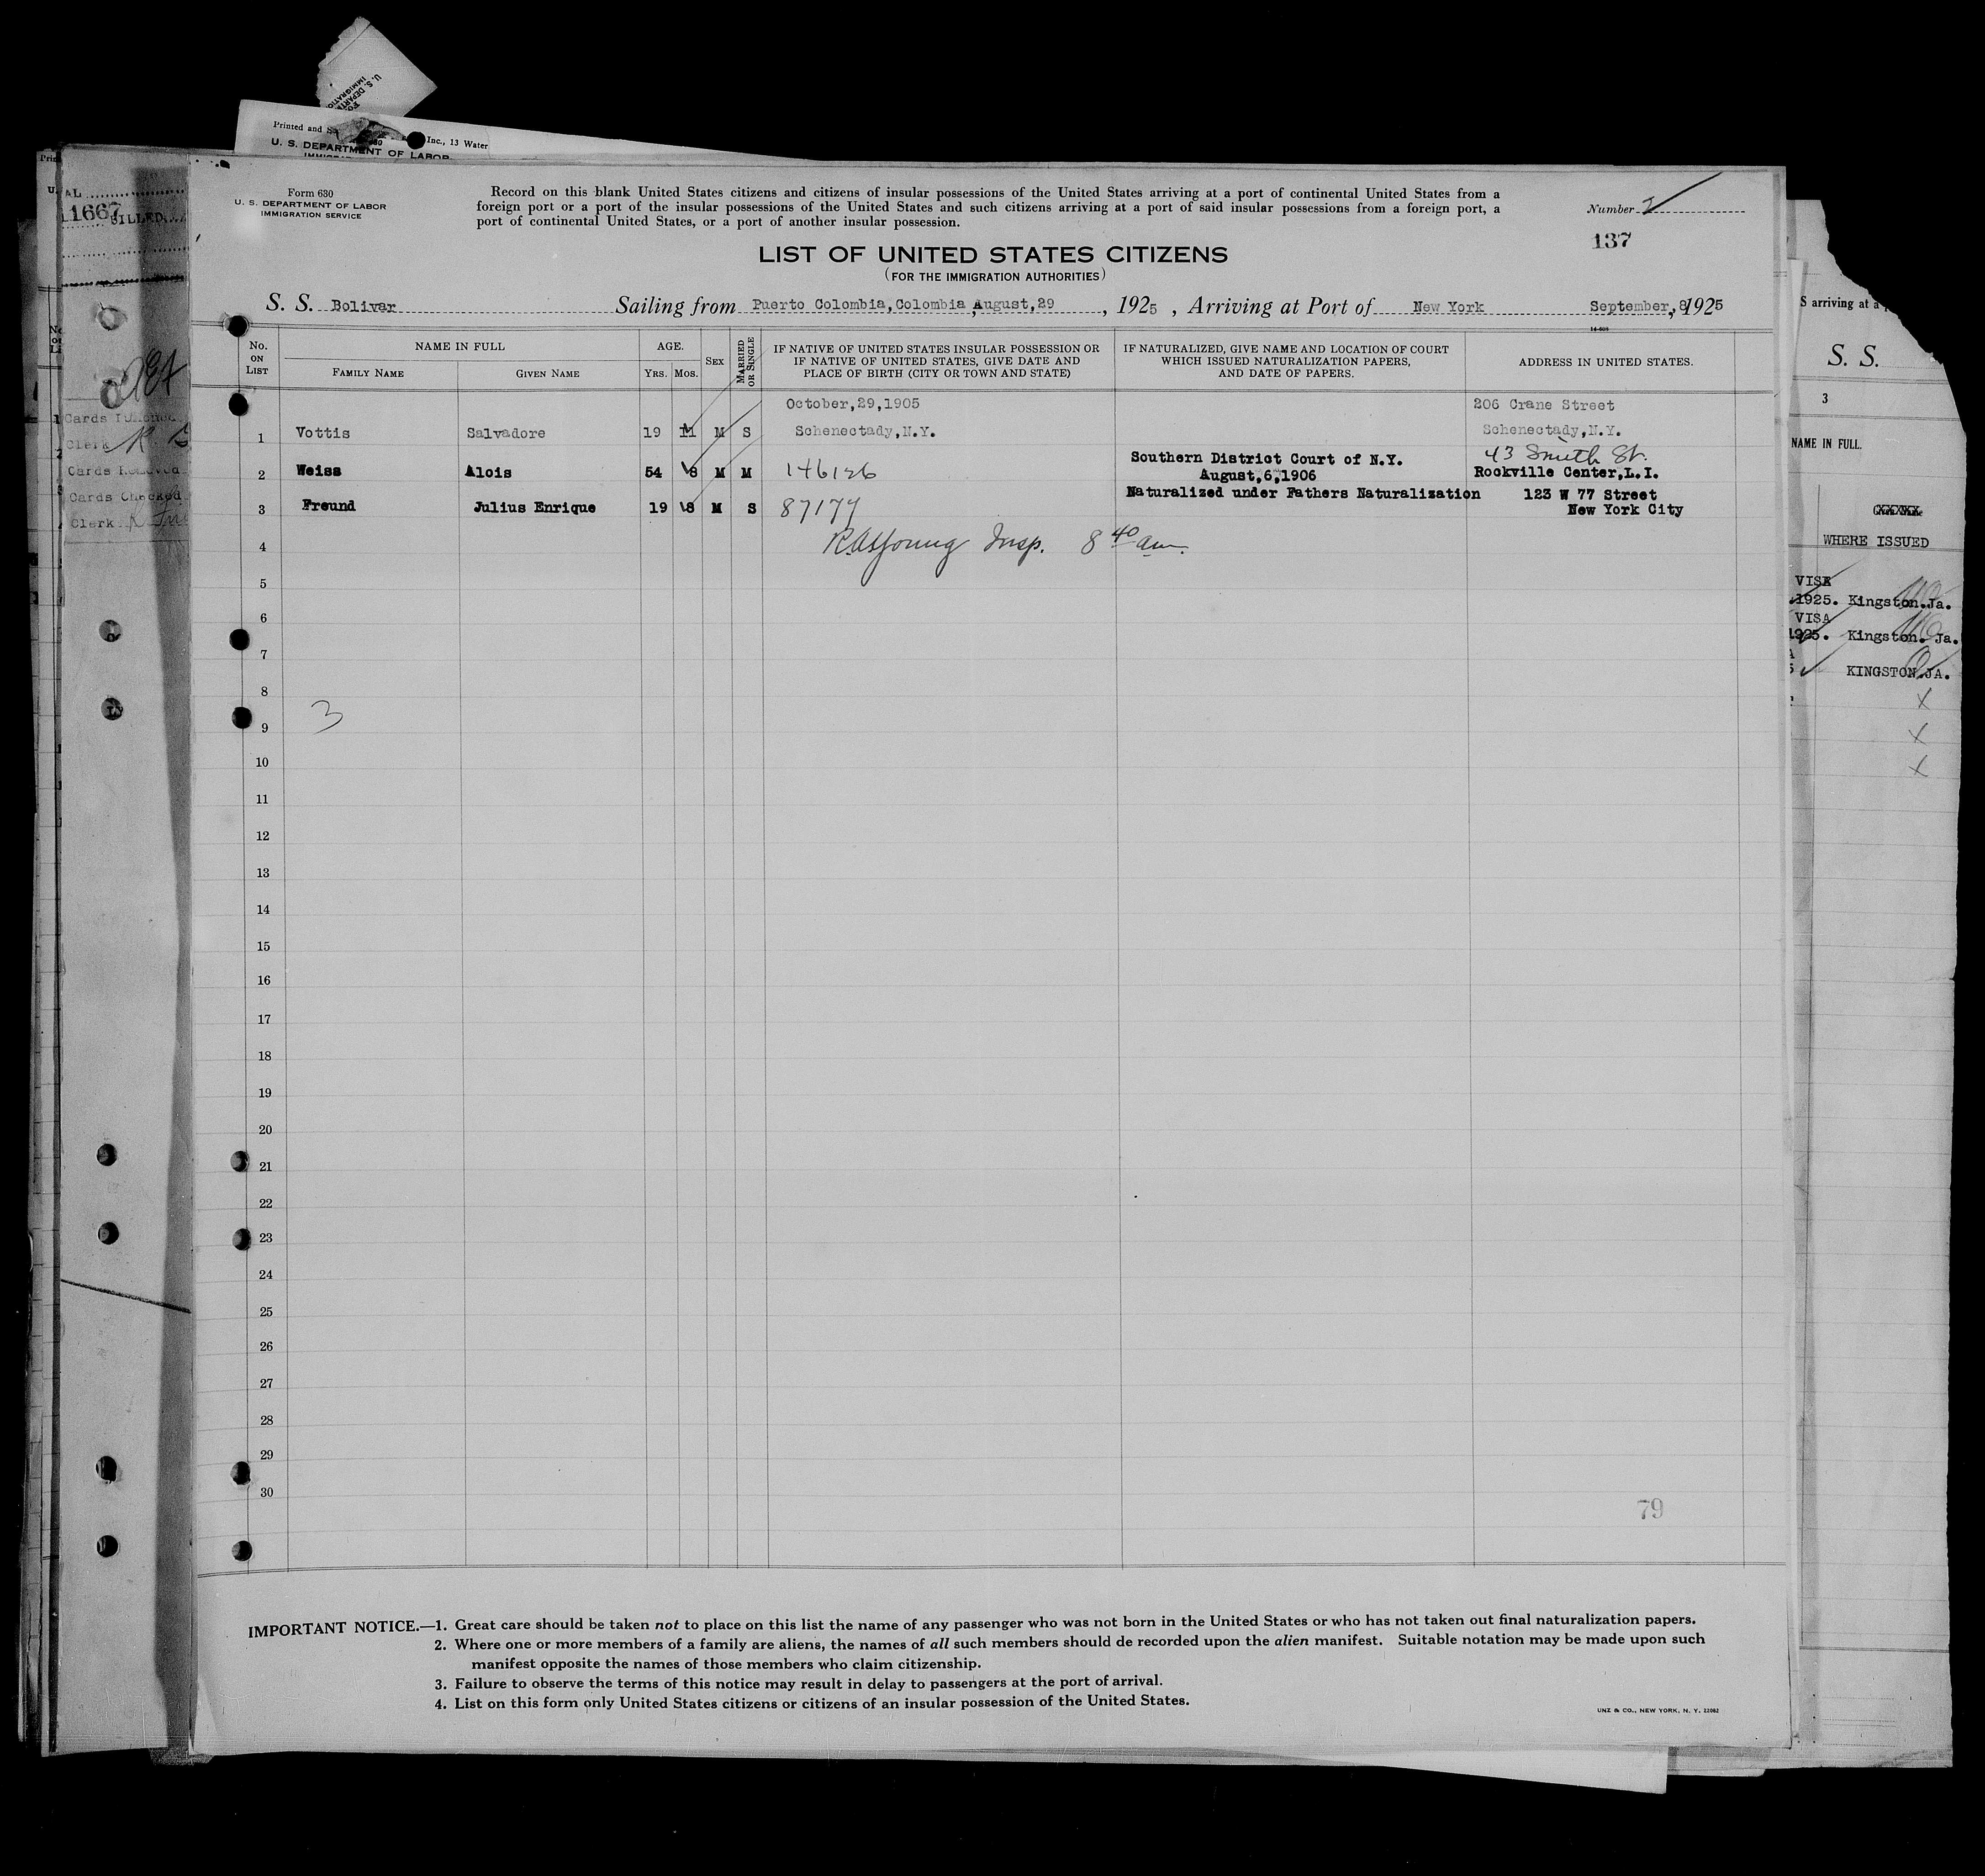 U. S. DEPART
IMMIGRATIO
Printed and So
Inc., 13 Water
U. S. DEPARTMENT OF LABOR
AL
11667
BILLED
Cards Punched
Clerk
Cards Removed
Cards Checked
Clerk
Form 630
U. S. DEPARTMENT OF LABOR
IMMIGRATION SERVICE
Record on this blank United States citizens and citizens of insular possessions of the United States arriving at a port of continental United States from a
foreign port or a port of the insular possessions of the United States and such citizens arriving at a port of said insular possessions from a foreign port, a
port of continental United States, or a port of another insular possession.
Number 2
137
LIST OF UNITED STATES CITIZENS
(FOR THE IMMIGRATION AUTHORITIES)
S. S. Bolivar Sailing from Puerto Colombia, Colombia, August, 29, 1925, Arriving at Port of New York September, 8, 1925
14-508
No. ON LIST
NAME IN FULL
FAMILY NAME
GIVEN NAME
AGE.
YRS. MOS.
SEX
MARRIED OR SINGLE
IF NATIVE OF UNITED STATES INSULAR POSSESSION OR
IF NATIVE OF UNITED STATES, GIVE DATE AND
PLACE OF BIRTH (CITY OR TOWN AND STATE)
IF NATURALIZED, GIVE NAME AND LOCATION OF COURT
WHICH ISSUED NATURALIZATION PAPERS,
AND DATE OF PAPERS.
ADDRESS IN UNITED STATES.
October, 29, 1905 206 Crane Street
1 Vottis Salvadore 19 11 M S Schenectady, N.Y. Schenectady, N.Y.
Southern District Court of N.Y. 43 Smith St.
2 Weiss Alois 54 8 M M 146126 August, 6, 1906 Rockville Center, L.I.
Naturalized under Fathers Naturalization 123 W 77 Street
3 Freund Julius Enrique 19 8 M S 87177 New York City
4 Insp. 8 40 am.
5
6
7
8
3
9
10
11
12
13
14
15
16
17
18
19
20
21
22
23
24
25
26
27
28
29
30
79
IMPORTANT NOTICE.—1. Great care should be taken not to place on this list the name of any passenger who was not born in the United States or who has not taken out final naturalization papers.
2. Where one or more members of a family are aliens, the names of all such members should de recorded upon the alien manifest. Suitable notation may be made upon such
manifest opposite the names of those members who claim citizenship.
3. Failure to observe the terms of this notice may result in delay to passengers at the port of arrival.
4. List on this form only United States citizens or citizens of an insular possession of the United States.
UNZ & CO., NEW YORK, N. Y. 22082
S arriving at a
S. S.
3
NAME IN FULL.
WHERE ISSUED
VISA
1925. Kingston.Ja.
VISA
1925. Kingston. Ja.
KINGSTON.JA.
X
X
X